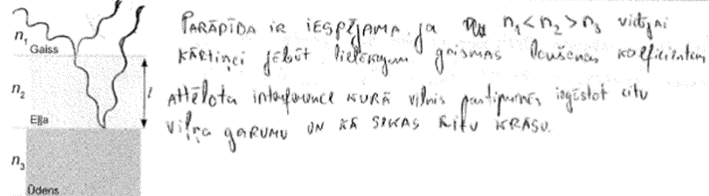 n₁ Gaiss
n₂
l
Eļļa
n₃
Ūdens
PARĀDĪBA ir iESPĒJAMA ja n₁ < n₂ > n₃ vidējai
KĀRTIŅCI jābūt lielākajam gaismas laušanas koeficientam
Attēlota interference KURĀ vilnis pastiprinās iegūstot citu
viļņa garumu UN KĀ SEKAS citu KRĀSU.